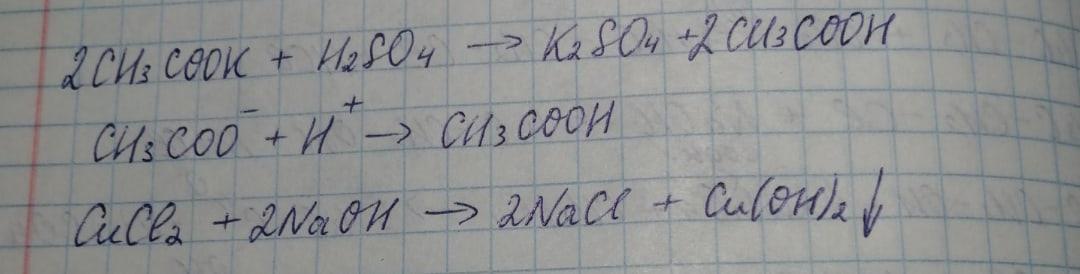 2CH₃COOK + H₂SO₄ → K₂SO₄ + 2CH₃COOH
CH₃COO⁻ + H⁺ → CH₃COOH
CuCl₂ + 2NaOH → 2NaCl + Cu(OH)₂↓